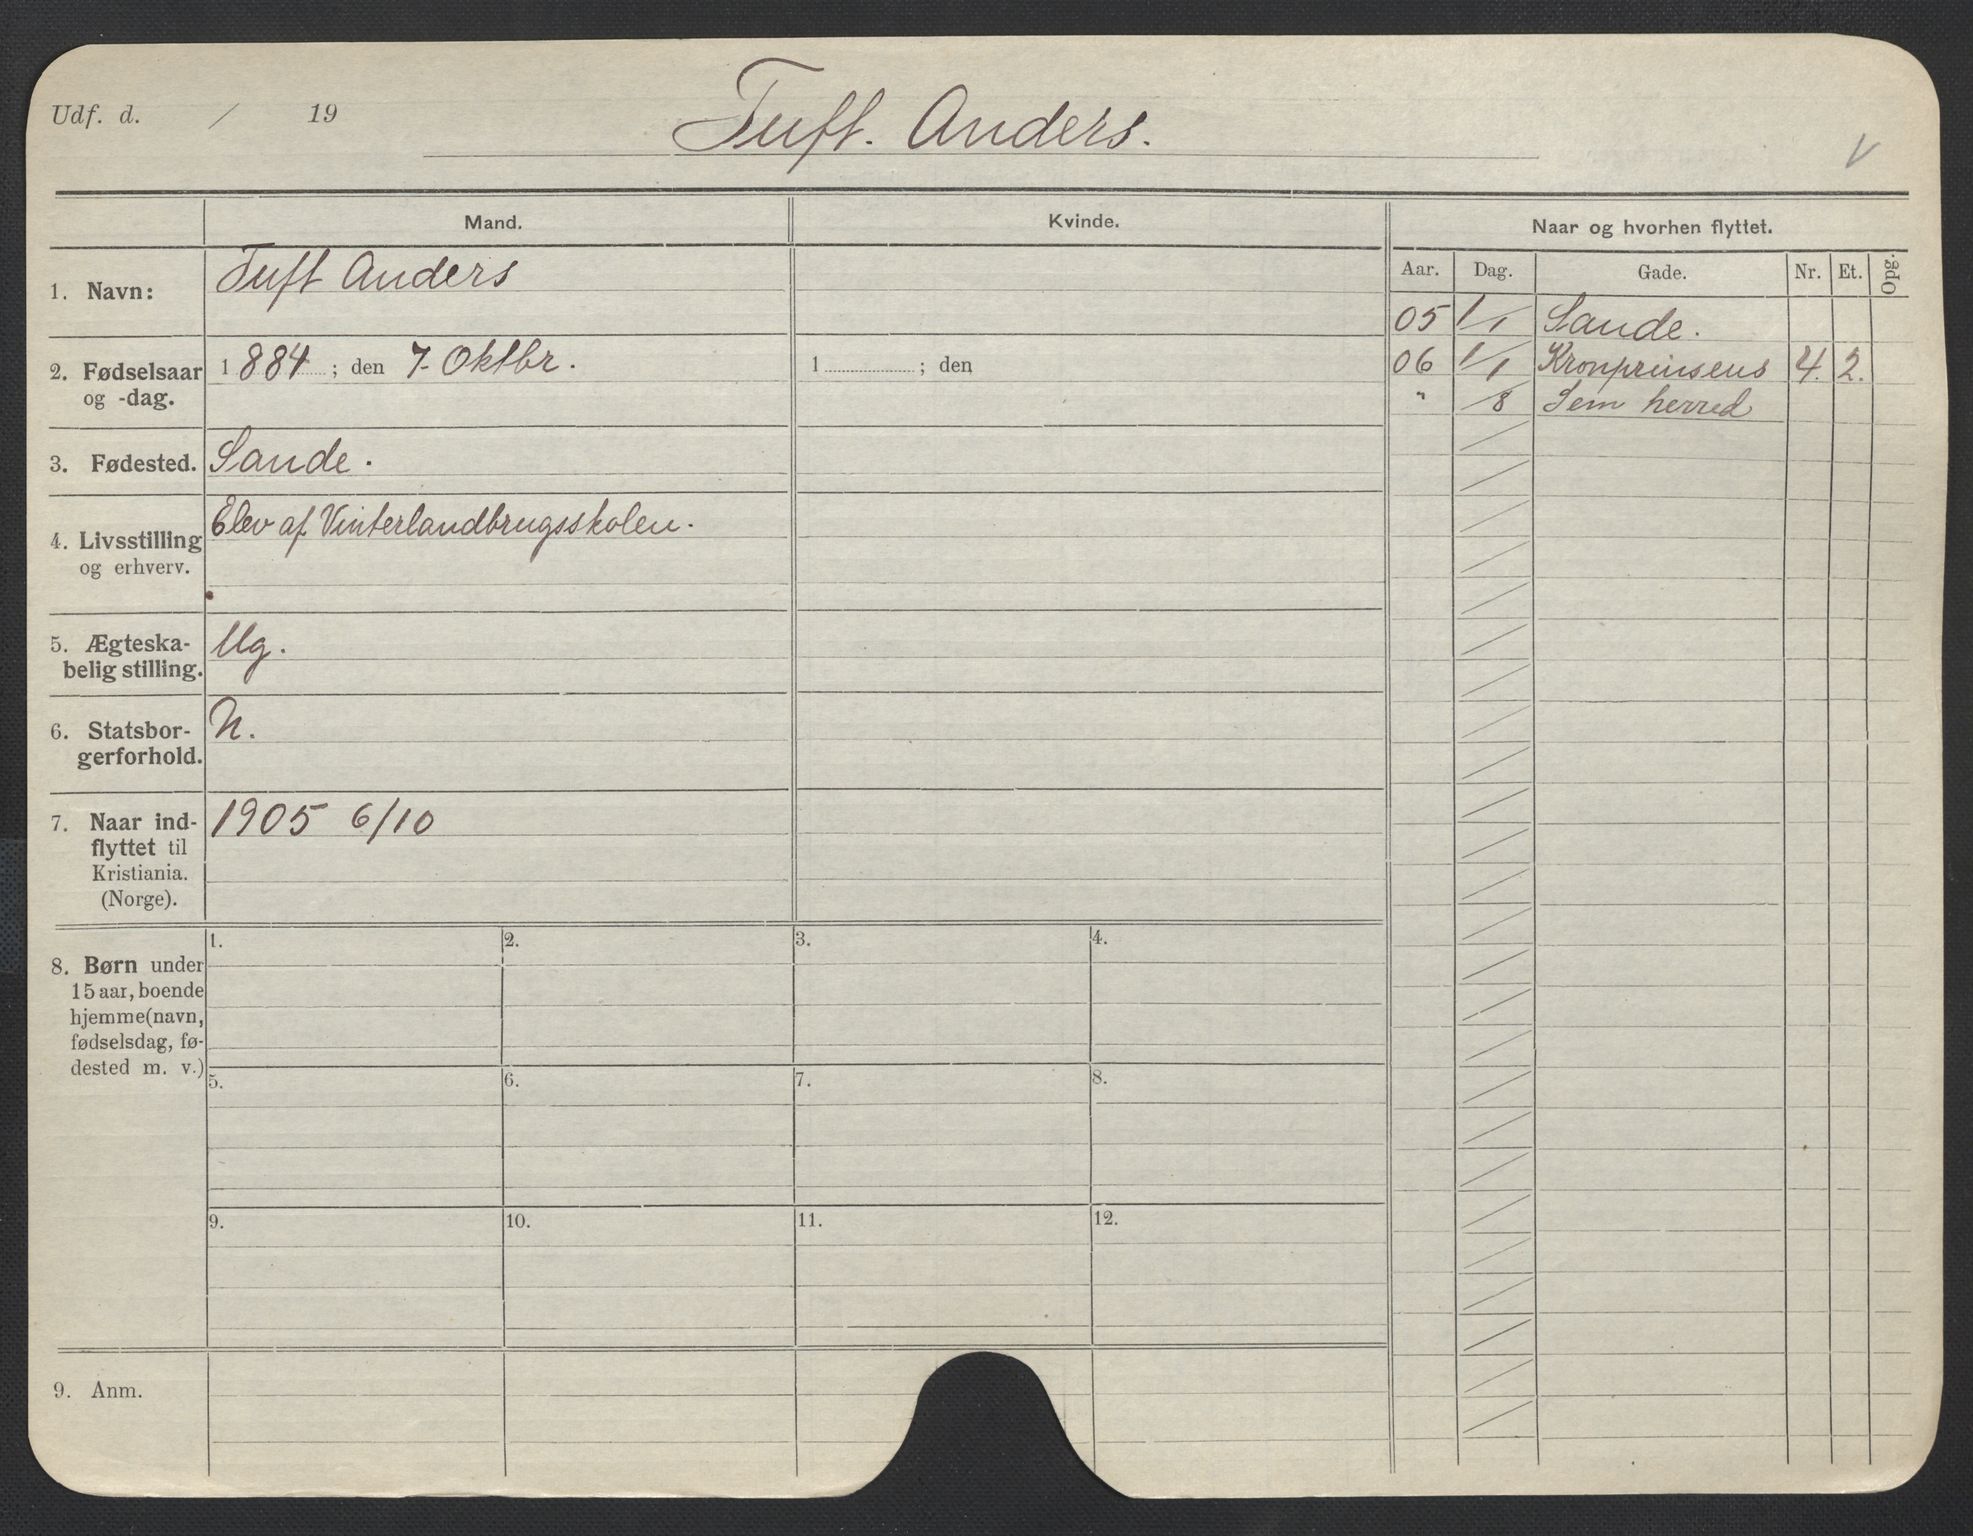 Udf. d. / 19
Tuft. Anders.
V
Mand. Kvinde. Naar og hvorhen flyttet.
Aar. Dag. Gade. Nr. Et. Opg.
1. Navn: Tuft Anders
05 1/1 Sande.
2. Fødselsaar og -dag. 1884 ; den 7. Oktbr. 1 ; den
06 1/1 Kronprinsens 4. 2.
" /8 Sem herred
3. Fødested. Sande.
4. Livsstilling og erhverv. Elev af Vinterlandbrugsskolen.
5. Ægteska-
belig stilling. Ug.
6. Statsbor-
gerforhold. N.
7. Naar ind-
flyttet til
Kristiania.
(Norge). 1905 6/10
8. Børn under
15 aar, boende
hjemme (navn,
fødselsdag, fø-
dested m. v.)
1. 2. 3. 4.
5. 6. 7. 8.
9. 10. 11. 12.
9. Anm.